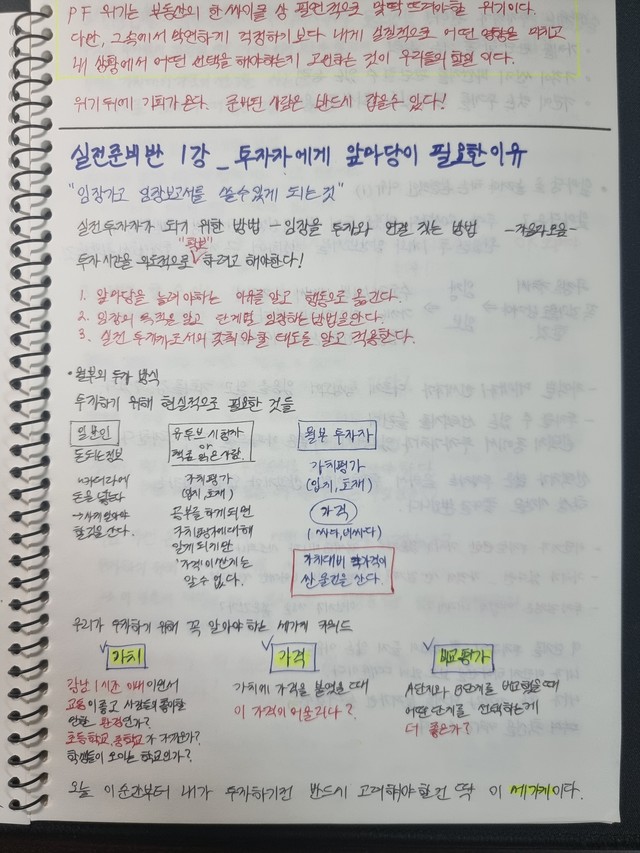 PF 위기는 부동산의 한 싸이클 상 필연적으로 맞딱 뜨려야할 위기이다.
다만, 그속에서 막연하게 걱정하기보다 내게 실질적으로 어떤 영향을 미치고
내 상황에서 어떤 선택을 해야하는지 고민하는 것이 우리들의 할일 이다.
위기 뒤에 기회가 온다. 준비된 사람은 반드시 잡을수 있다!
실전준비반 1강 _ 투자자에게 앞마당이 필요한이유
"임장가고 임장보고서를 쓸수있게 되는 것"
실전투자자가 되기 위한 방법 - 임장을 투자와 연결 짓는 방법
"확보"
투자시간을 의도적으로 하려고 해야한다!
1. 앞마당을 늘려야하는 이유를 알고 행동으로 옮긴다.
2. 임장의 목적을 알고 단계별 임장하는방법을안다.
3. 실전 투자자로서의 갖춰야 할 태도를 알고 적용한다.
• 월부의 투자 방식
투자하기 위해 현실적으로 필요한 것들
일반인 유튜브 시청자 월부 투자자
책을 읽은사람
돈되는정보 가치평가 가치평가
(입지, 호재) (입지, 호재)
돈을 넣는다 공부를 하게되면 가격
가치평가에대해 (싸다, 비싸다)
알게되지만
'가격'이 싼지는 가치대비 가격이
알 수 없다. 싼 물건을 산다.
우리가 투자하기 위해 꼭 알아야 하는 세가지 키워드
가치 가격 비교평가
강남 1시간 이내 이면서 가치에 가격을 붙였을 때 A단지와 B단지를 비교했을때
교통이좋고 사람들이좋아할 이 가격이 어울리나? 어떤단지를 선택하는게
만한 환경인가? 더 좋은가?
초등학교, 중학교가 가까운가?
학생들이 모이는 학교인가?
오늘 이순간부터 내가 투자하기전 반드시 고려해야할건 딱 이 세가지이다.